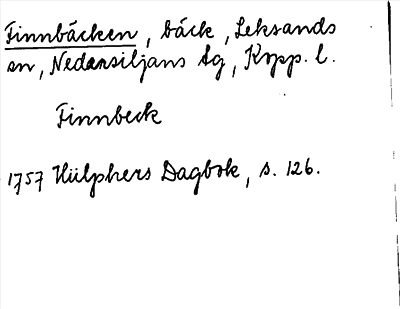 Finnbäcken, bäck, Leksands
sn, Nedansiljans tg, Kopp. l.
Finnbeck
1757 Hülphers Dagbok, s. 126.